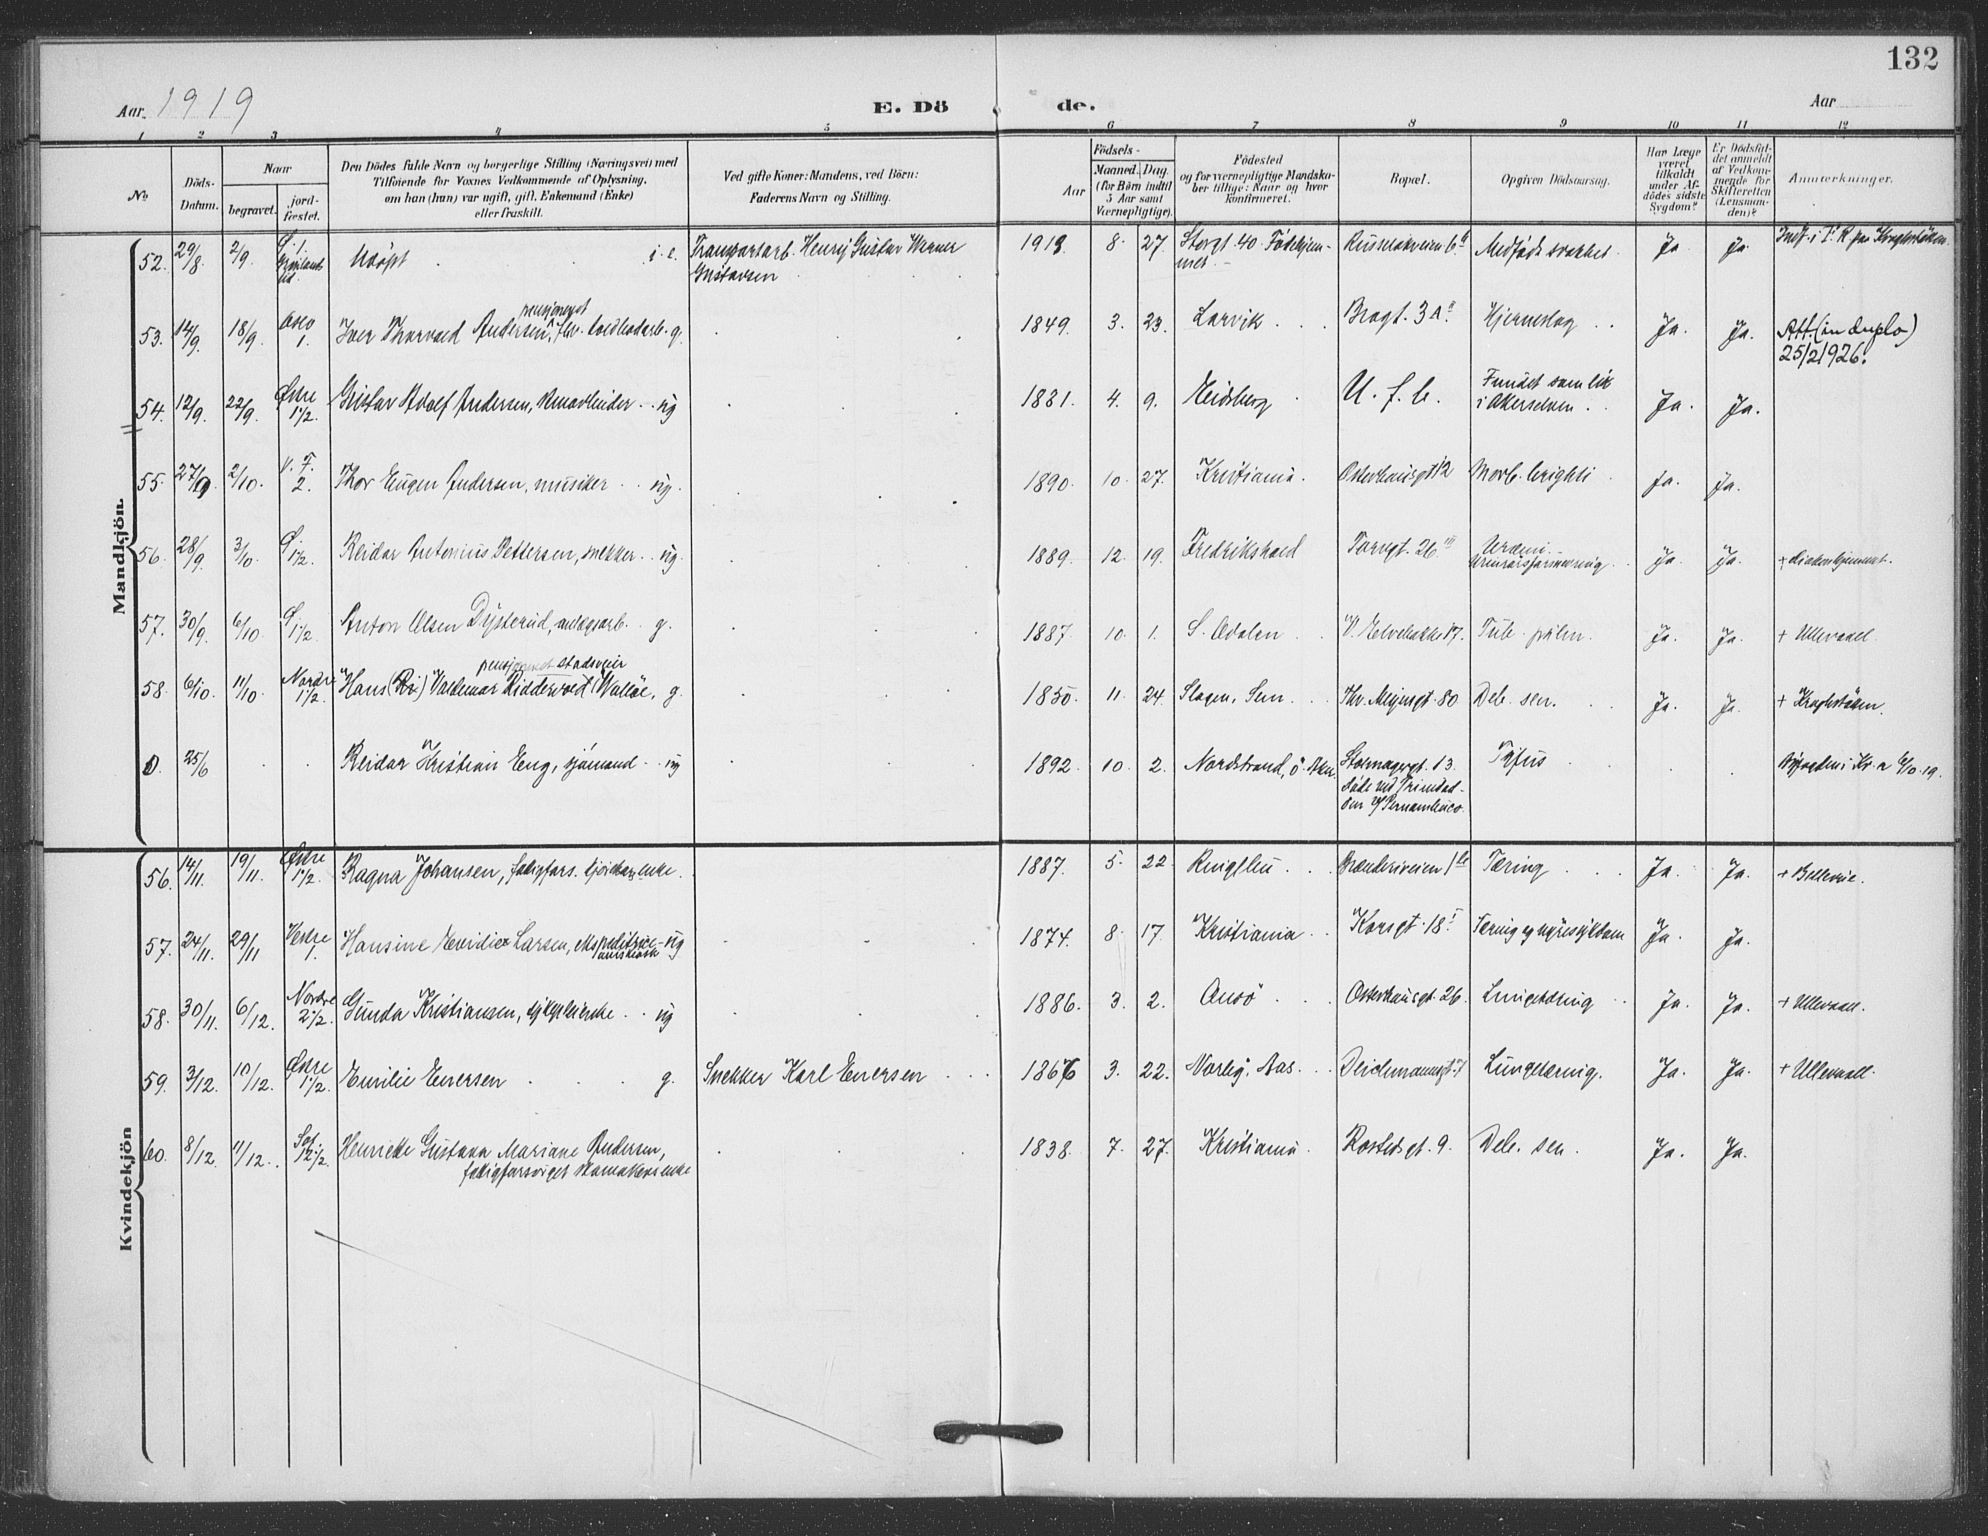 132
Aar 1919 E. Dö de. Aar
1 2 3 4 5 6 7 8 9 10 11 12
No. Döds-Datum. Naar begravet. jord-fæstet. Den Dödes fulde Navn og borgerlige Stilling (Næringsvei) med Tilföiende for Voxnes Vedkommende af Oplysning, om han (hun) var ugift, gift, Enkemand (Enke) eller fraskilt. Ved gifte Koner: Mandens, ved Börn: Faderens Navn og Stilling. Födsels- Aar Maaned. Dag. (for Börn indtil 5 Aar samt Værnepligtige). Födested og for værnepligtige Mandskaber tillige: Naar og hvor konfirmeret. Bopæl. Opgiven Dödsaarsag. Har Læge været tilkaldt under Afdödes sidste Sygdom? Er Dödsfaldet anmeldt af Vedkommende for Skifteretten (Lensmanden)? Anmærkninger.
Mandkjön.
52. 29/8 2/9. Udöpt i. e. Transportarb. Henry Gustav Werner 8. 27. Storgt. 40. Födehjem- Medfødt svakhet. Ja Ja
Gustavsen met.
pensjoneret
53. 14/9. 18/9. Oslo 1. Iver Thorvald Andersen, g. 1849. 3. 23. Larvik Hjerneslag Ja. Ja. Att. (in duplo)
25/2 1926.
54. 12/9. 22/9. Østre 1 1/2. Gustav Adolf Andersen, ug 4. 9. Eidsberg U. f. b. Fundet som lik i Akerselven Ja. Ja.
55. 27/9. 2/10. V. F. 2. Thor Eugen Andersen, musiker ug. 1890. 10. 27. Kristiania. Osterhausgt 12 Morb. brighti Ja. Ja.
56. 28/9. 3/10. Ø. 1 1/2. Reidar Antonius Pettersen, snekker ug. 1889. 12. 19. Fredrikshald Torvgt. 26 III Uræmi. Ja. Ja.
57. 30/9. 6/10. Ø. 1 1/2. Anton Olsen Dysterud, g. 1887. 10. 1. S. Odalen Tub. pulm. Ja. Ja. + Ullevaal.
pensjoneret stadsveier
58. 6/10. 11/10. Nordre 1 1/2. Hans (Kr.) Valdemar Riddervold Walløe, g. 1850. 11. 24. Slagen, Sem Thv. Meyersgt. 80 Deb. sen. Ja. Ja.
0. 25/6 Reidar Kristian Eng, sjömand ug 1892. 10. 2. Nordstrand, ö. Aker. 13. Tyfus
Döde ved Trinidad
Pernambuco.
Kvindekjön
56. 14/11. 19/11. Østre 1 1/2. Ragna Johansen, enke. 1887. 5. 22. Ja. Ja. + Bellevue.
Tæring
57. 24/11. 29/11 Vestre 1. Hansine Larsen, ekspeditrice ug 1874. 8. 17. Kristiania Korsgt. 18 I Tæring og nyresykdom Ja. Ja.
58. 30/11. 6/12. Nordre 2 1/2. Gunda Kristiansen, sykepleierske ug 1886. 3. 2. Osterhausgt. 26. Lungetæring Ja. Ja. + Ullevaal.
59. 3/12. 10/12. Østre 1 1/2. Emilie Eversen g. Snekker Karl Eversen 3. 22. Norby, Aas. Deichmannsgt. 7 Lungetæring. Ja. Ja. + Ullevaal.
60. 8/12. 11/12. Henriette Gustava Mariane Andersen, 1838. 7. 27. Kristiania Rostedsgt. 9. Deb. sen. Ja. Ja.
fattigforsörget